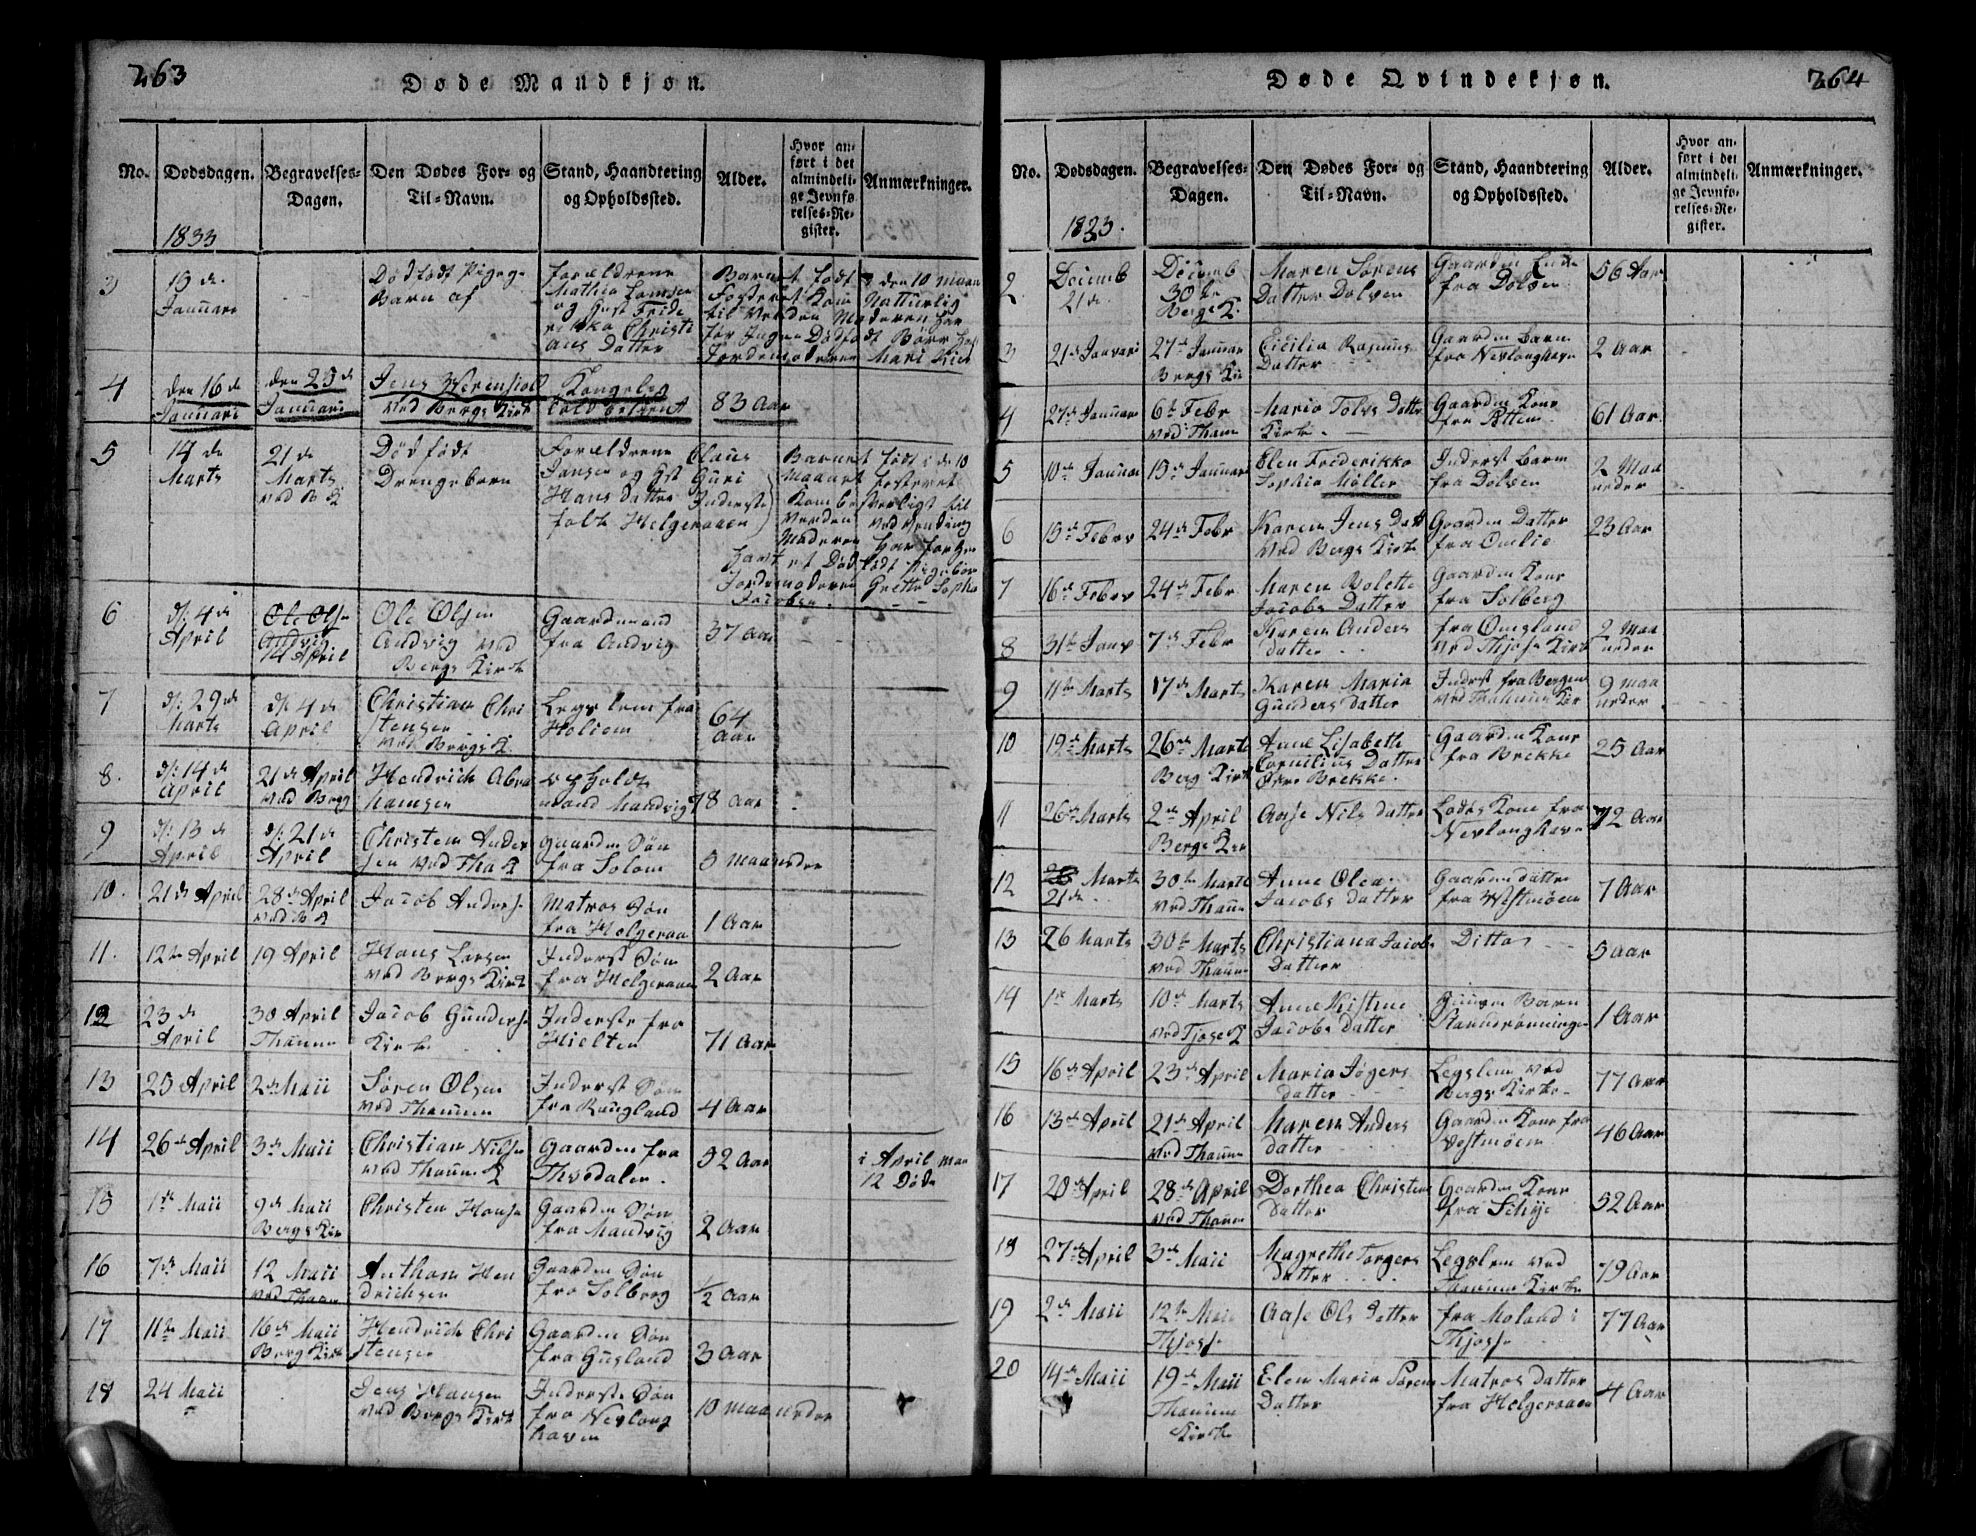 263
Døde Mandkjøn.
No. Dødsdagen. Begravelses-Dagen. Den Dødes For- og Til-Navn. Stand, Haandtering og Opholdssted. Alder. Hvor anført i det almindelige Jevnførelses-Register. Anmærkninger.
1833
3 15 de Januari Død født Pige Barn af Forældrene Mathia
4 Den 16 de Januari den 23 de Januari Jens Werenskiold ved Bergs Kirk Kongelig 83 Aar
5 14 de Marts 21 de Marts ved B K Død født Drengebarn Forældrene Claus Jansen og Guri Hans datter Inderste folk Helgeraaen
Barnet født i de 10 Maaart fosteret Kom besverligt til Verden ved Vending Moderen Har forhen havt et Død født Pigebarn Jordemoderen Grethe Sophe Jacobsen
6 d: 4 de April 14 April Ole Olsen Andvig ved Bergs Kirk Gaardmand fra Andvig 37 Aar
7 d: 29 de Marts d: 4 de April Christian Christensen ved Bergs K. Legslem fra Holiem 64 Aar
8. d: 14 de April 21 de April ved Berg Hendrich Abrahamsen mand Mandvig 78 Aar
9 d: 13 de April d: 21 de April Christen Andersen ved Tha K gaarden Søn fra Solom 5 maaneder
10. 21 de April 28 de April ved B K Jacob Anders Matros Søn fra Helgeraa 1 Aar
11. 12 te April 19 April Hans Larsen ved Bergs Kirk Inderst Søn fra Helgeraaen 2 Aar
12 23 de April 30 April Thaunm Kirke Jacob Gunders Inderste fra Hielten 71 Aar
13 25 April 2 de Maii Søren Olsen ved Thaunm Inderst Søn fra Rougland 4 Aar
14 26 de April 3 de Maii Christian Nilse ved Thaunm K Gaarden fra Thvedalen. 52 Aar i April maa 12 Døde
15 1 te Maii 9 de Maii Bergs Kir Christen Hanse Gaarden Søn fra Mandvig 2 Aar
16 7 de Maii 12 Maii ved Thaunm Anthon Hendrichsen Gaarden Søn fra Solberg 1/2 Aar
17 11 te Maii 16 de Maii Berg Kirk Hendrich Christensen Gaarden Søn fra Gusland 3 Aar
18 24 Maii Jens Hansen ved Bergs Kirk Inderste Søn fra Nevlonghaven 10 maaneder
264
Døde Qvindekjøn.
No. Dødsdagen. Begravelses-Dagen. Den Dødes For- og Til-Navn. Stand, Haandtering og Opholdssted. Alder. Hvor anført i det almindelige Jevnførelses-Register. Anmærkninger.
1833.
2 Decemb 21 de Decemb 30 te Bergs K. Maren Sørens Datter Dolven Gaarden fra Dolven 56 Aar
3 21 de Januari 27 de Januar Bergs Kir Cicilia Rasmus Datter Gaarden barn fra Nevlonghavn 2 Aar
4 27 de Januar 6 te Febr ved Thaun Kirke Maria Tolvs Datter Gaarden Kone fra 61 Aar
5 10 de Januar 15 de Januari Elen Frederikke Sophie Møller Inderst barn fra Dolven 2 Maaneder
6 15 de Febrv 24 de Febr Karen Jens Datt ved Bergs Kirke Gaarden Datter fra Omlie 23 Aar
7 16 de Febrv 24 de Febr Maren Bolette Jacobs Datter Gaarden Kone fra Solberg
8 31 te Janv 7 de Febr Karen Anders datter fra Omsland ved Thjose Kirk 2 Maaneder
9 11 te Marts 17 de Marts Karen Maria Gunders datter Inderst fra Bergene ved Thaunm Kir 9 maaneder
10 19 de Marts 26 de Marts Berg Kirk Anne Lisabeth Cornelius Datter Øvre Brekke. Gaarden Kone fra Brekke 25 Aar
11 26 de Marts 2 de April Bergs Kir Aase Nils datter Lods Kone fra Nevlonghavn 72 Aar
12 Marts 21 de. 30 te Marts ved Thaun Anne Olea Jacobs datter Gaarden datter fra Vestmøen 7 Aar
13 26 Marts 30 te Marts ved Thaun Christiana Jacobs Datter Ditto 5 Aar
14 1 te Marts 10 de Marts ved Tjose K Anne Kistine Jacobs datter Barn 1 Aar
15 16 de April 23 de April Maria Jøgers datter Legslem ved Bergs Kirke 77 Aar
16 13 de April 21 de April ved Thaunm Maren Anders datter Gaarden Kone fra Vestmøen 46 Aar
17 20 de April 28 de April ved Thaunm Dorthea Christens Datter Gaarden Kone fra Schije 52 Aar
18 27 de April 3 de Maii Magrethe Torgers datter Legslem ved Thaunm Kirke 79 Aar
19 2 de Maii 12 te Maii Thjosse Aase Ols datter fra Moland i Thjosse 77 Aar
20 14 de Maii 19 de Maii Thaunm Kirke Elen Maria Sørens Datter Matros datter fra Helgeraaen 4 Aar